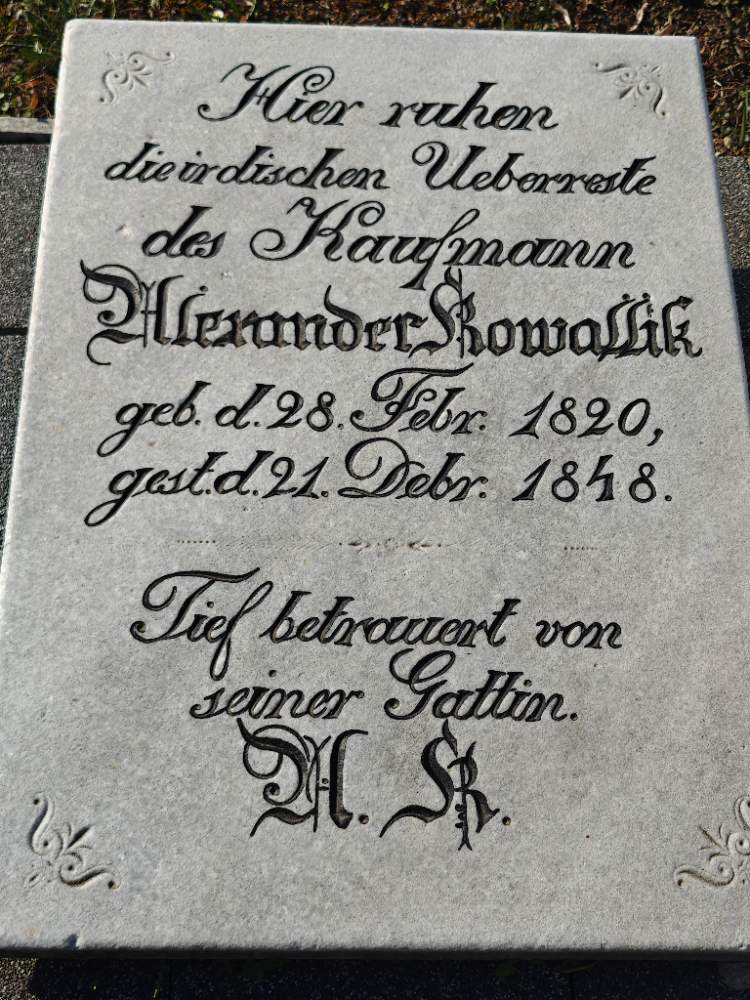 Hier ruhen
die irdischen Ueberreste
des Kaufmann
Alexander Kowallik
geb. d. 28. Febr. 1820,
gest. d. 21. Debr. 1848.
Tief betrauert von
seiner Gattin.
A. K.